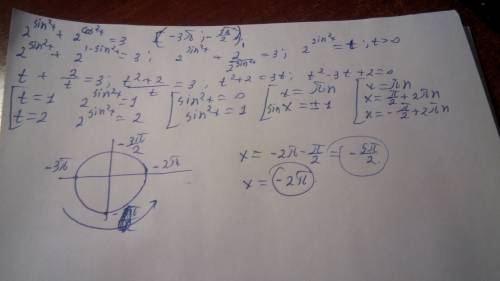 2^{sin²t} + 2^{cos²t} = 3   [-3π; -3π/2];
2^{sin²t} + 2^{1-sin²t} = 3;   2^{sin²t} + 2/2^{sin²t} = 3;   2^{sin²t} = t; t>0
t + 2/t = 3;   (t²+2)/t = 3;   t²+2 = 3t;   t²-3t+2=0
[ t=1   2^{sin²t} = 1   [ sin²t = 0   [ x = πn   [ x = πn
t=2   2^{sin²t} = 2   sin²t = 1   sin x = ±1   x = π/2 + 2πn
x = -π/2 + 2πn
-3π/2
-3π   -2π
x = -2π - π/2 = -5π/2
x = -2π